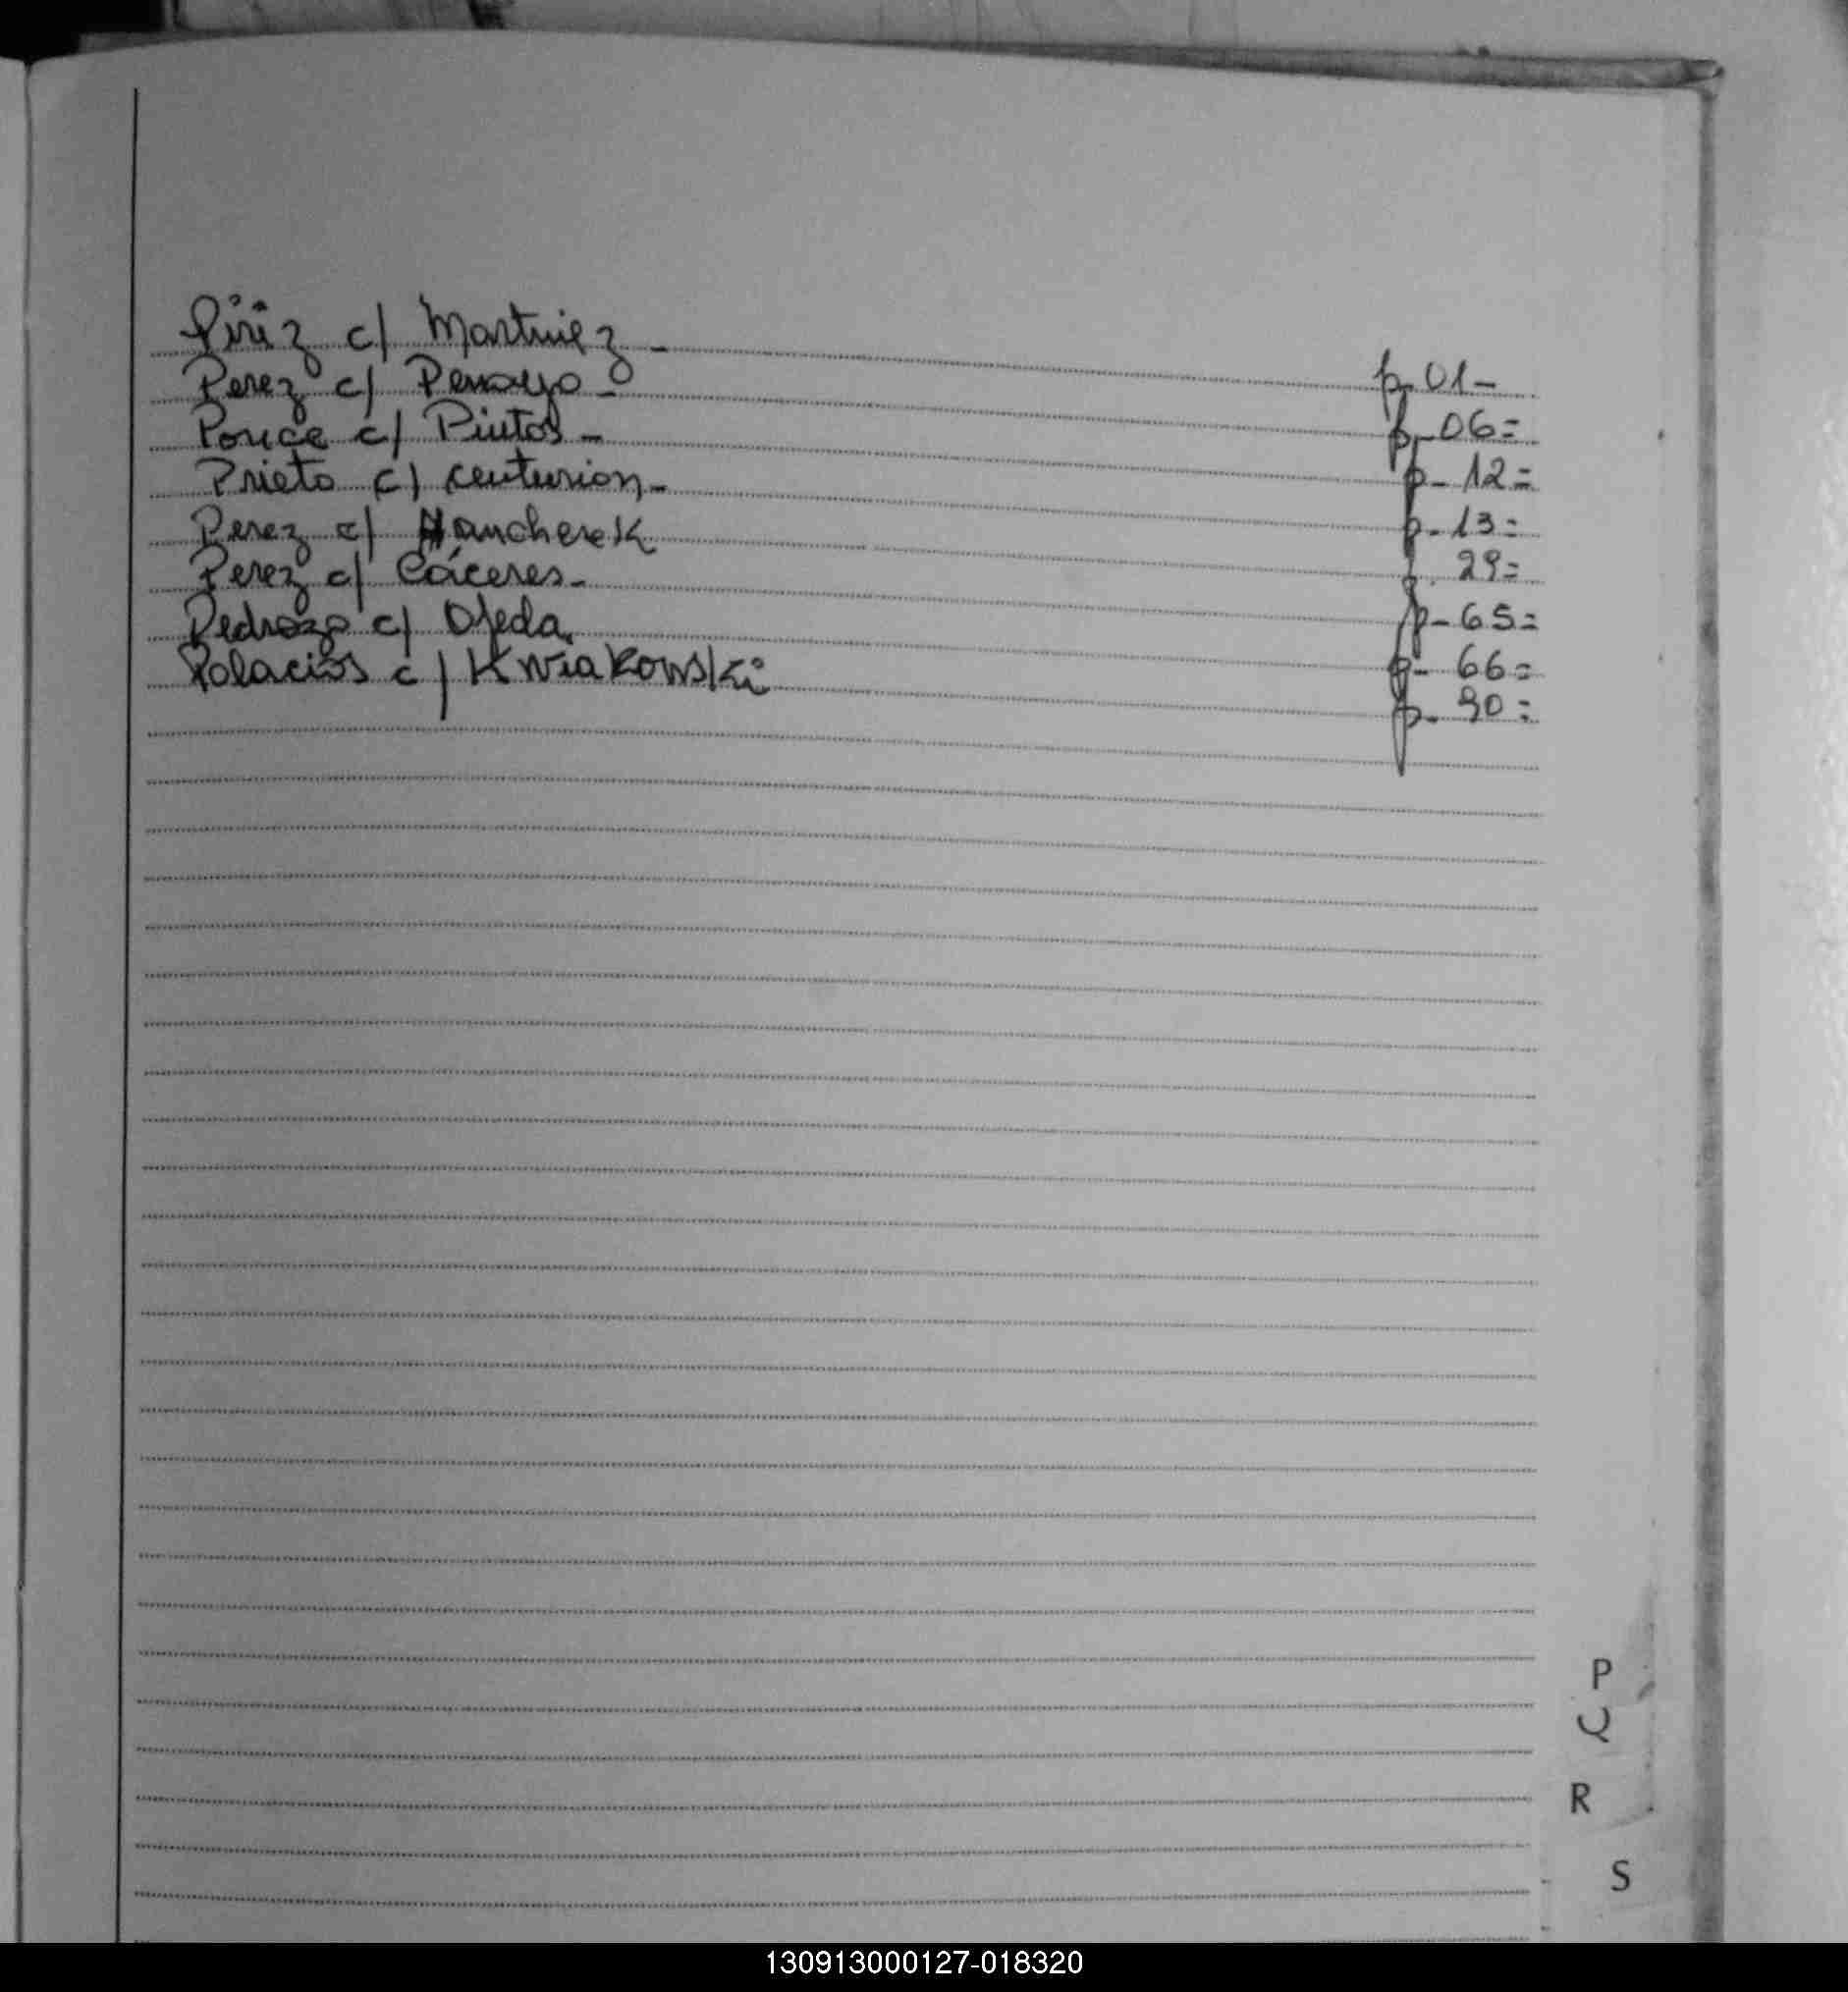 Piriz c/ Martinez - p. 01-
Perez c/ Penayo - p- 06=
Ponce c/ Pintos - p- 12=
Prieto c/ centurion - p- 13=
Perez c/ Hancherek p. 29=
Perez c/ Cáceres - p- 65=
Pedrozo c/ Ojeda. p- 66=
Palacios c/ Kwiakowski p- 90=
P
Q
R
S
130913000127-018320